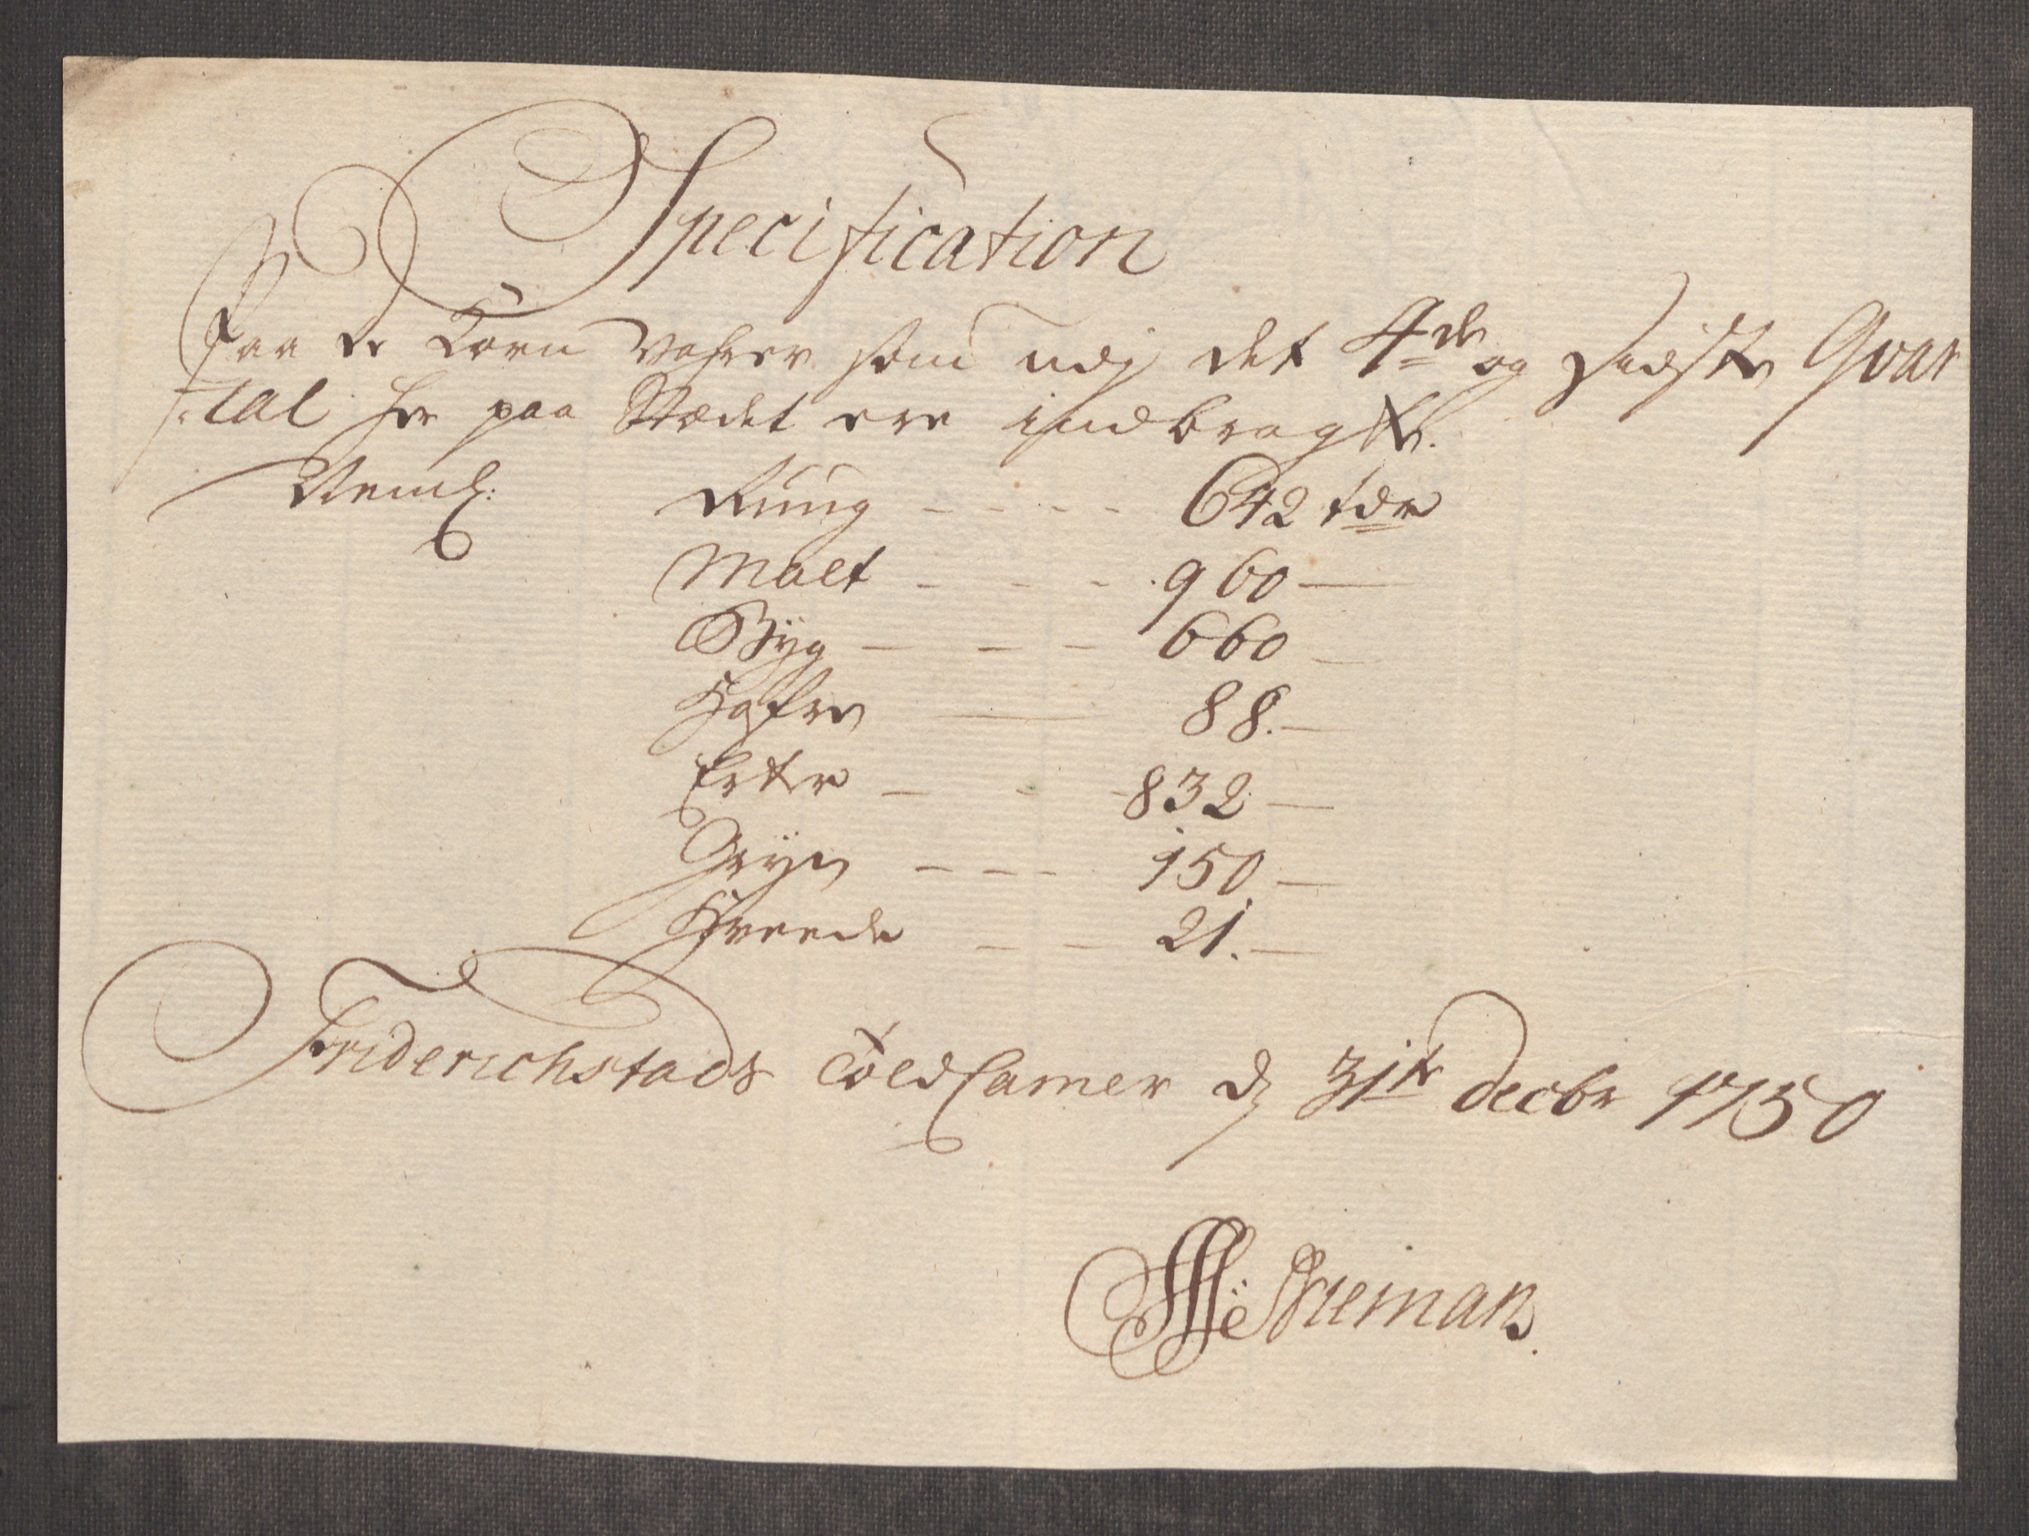 Specification
Paa de Korn Vahrer som udj det 4de og sidste Qvar
tal her paa Stædet ere indbragte.
Neml: Rung - - - - 642 tdr
Malt - - - 960 —
Byg - - - 660 —
Hafre — 88. —
Erter - - - 832 —
Gryn - - - 150 —
Hveede - - 21. —
Friderichstads Told Camer d 31te decbr 1750